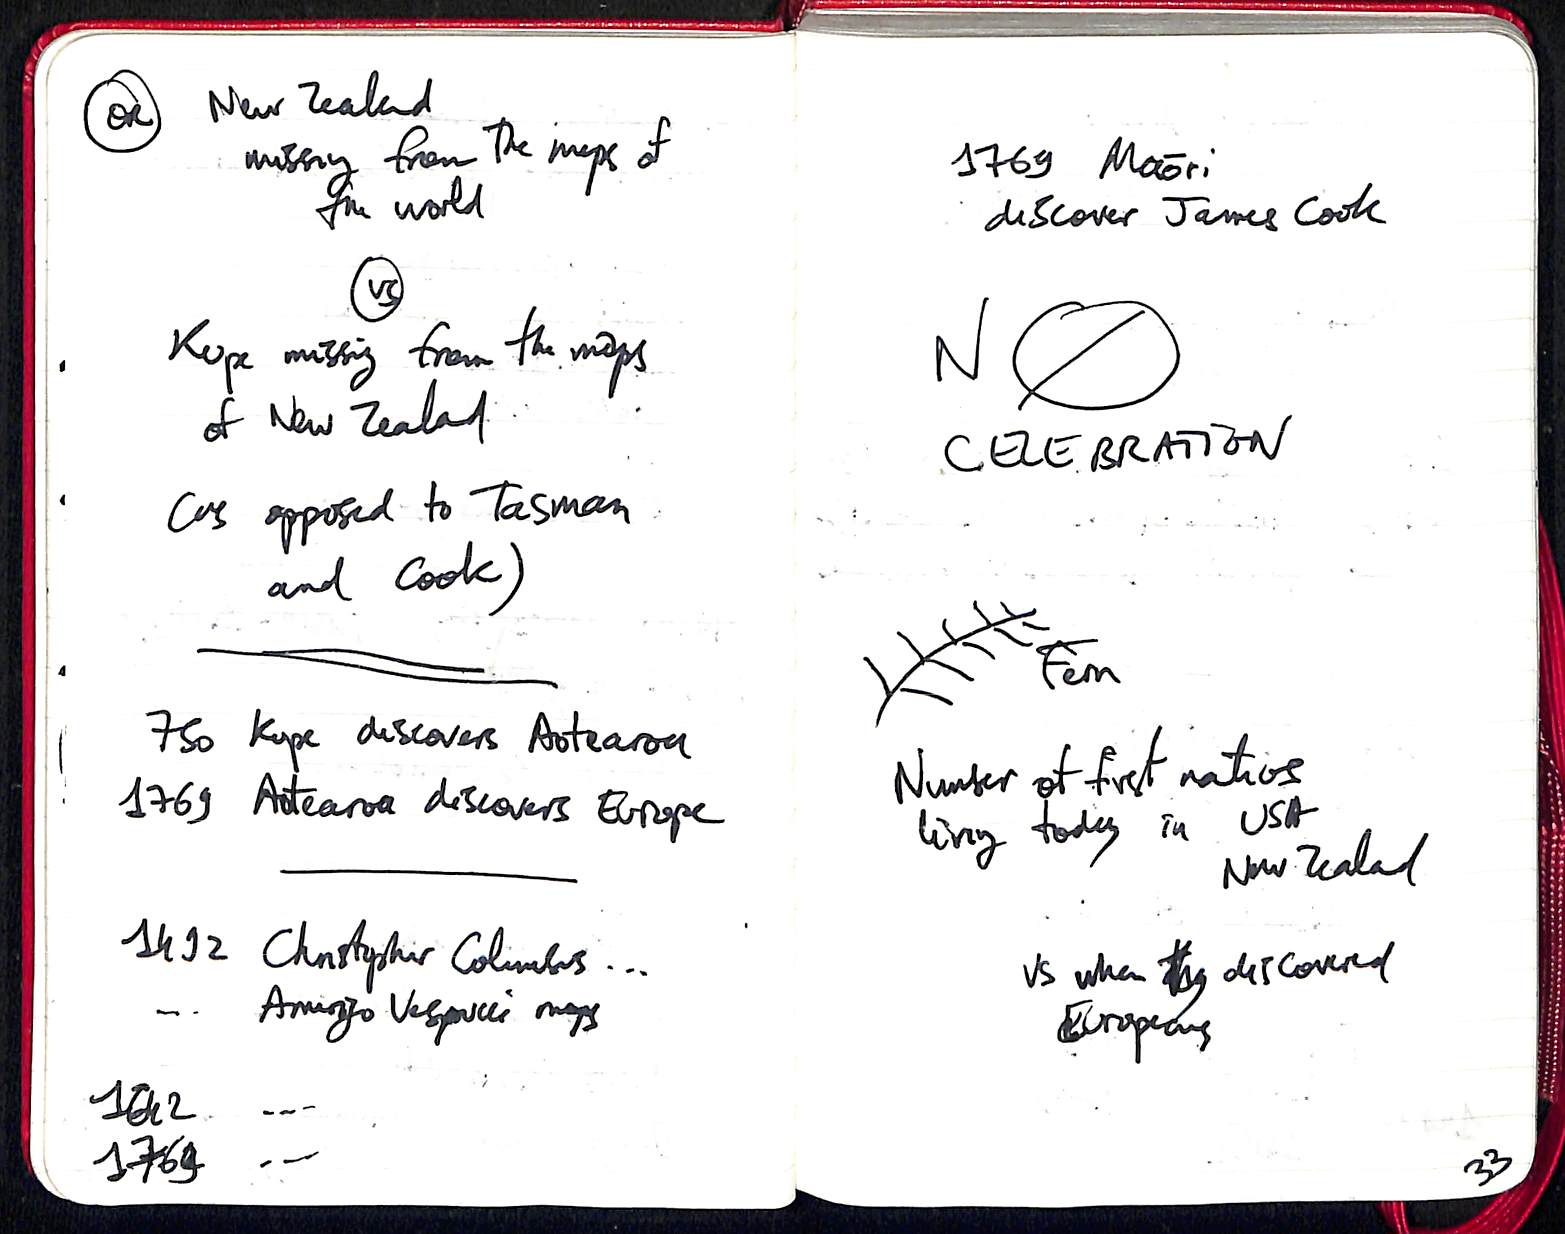 OR New Zealand
missing from the maps of
the world
vs
Kupe missing from the maps
of New Zealand
(as opposed to Tasman
and Cook)
750 Kupe discovers Aotearoa
1769 Aotearoa discovers Europe
1492 Christopher Columbus ...
... Amerigo Vespucci maps
1642 ---
1769 ---
1769 Maōri
discover James Cook
NO
CELEBRATION
Fern
Number of first natives
living today in USA
New Zealand
vs when they discovered
Europeans
33